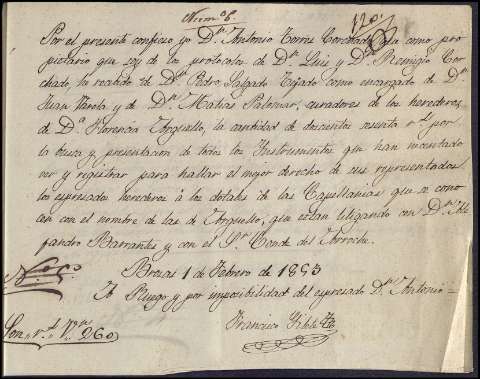 Num.º 6.
Por el presente confieso yo Dn. Antonio Torres Corchado, que como pro
pietario que soy de los protocolos de Dn. Luis y Dn. Remigio Cor
chado, he recivido de Dn. Pedro Salgado Tejado como encargado de Dn.
Juan Varela y de Dn. Matias Palomar, curadores de los herederos
de D.a Florencia Arguello, la cantidad de descientos sesenta r.s por
la busca y presentacion de todos los Instrumentos que han necesitado
ver y registrar para hallar el mejor derecho de sus representados
los espresados herederos á los dotales de las Capellanias que se cono
cen con el nombre de las de Arguello, que estan litigando con Dn.
jandro Barrantes y con el Sr. Conde del
Brozas 1 de Febrero de 1853
A Ruego y por imposibilidad del espresado Dn. Antonio =
Francisco
Son, r.s Vn. 260